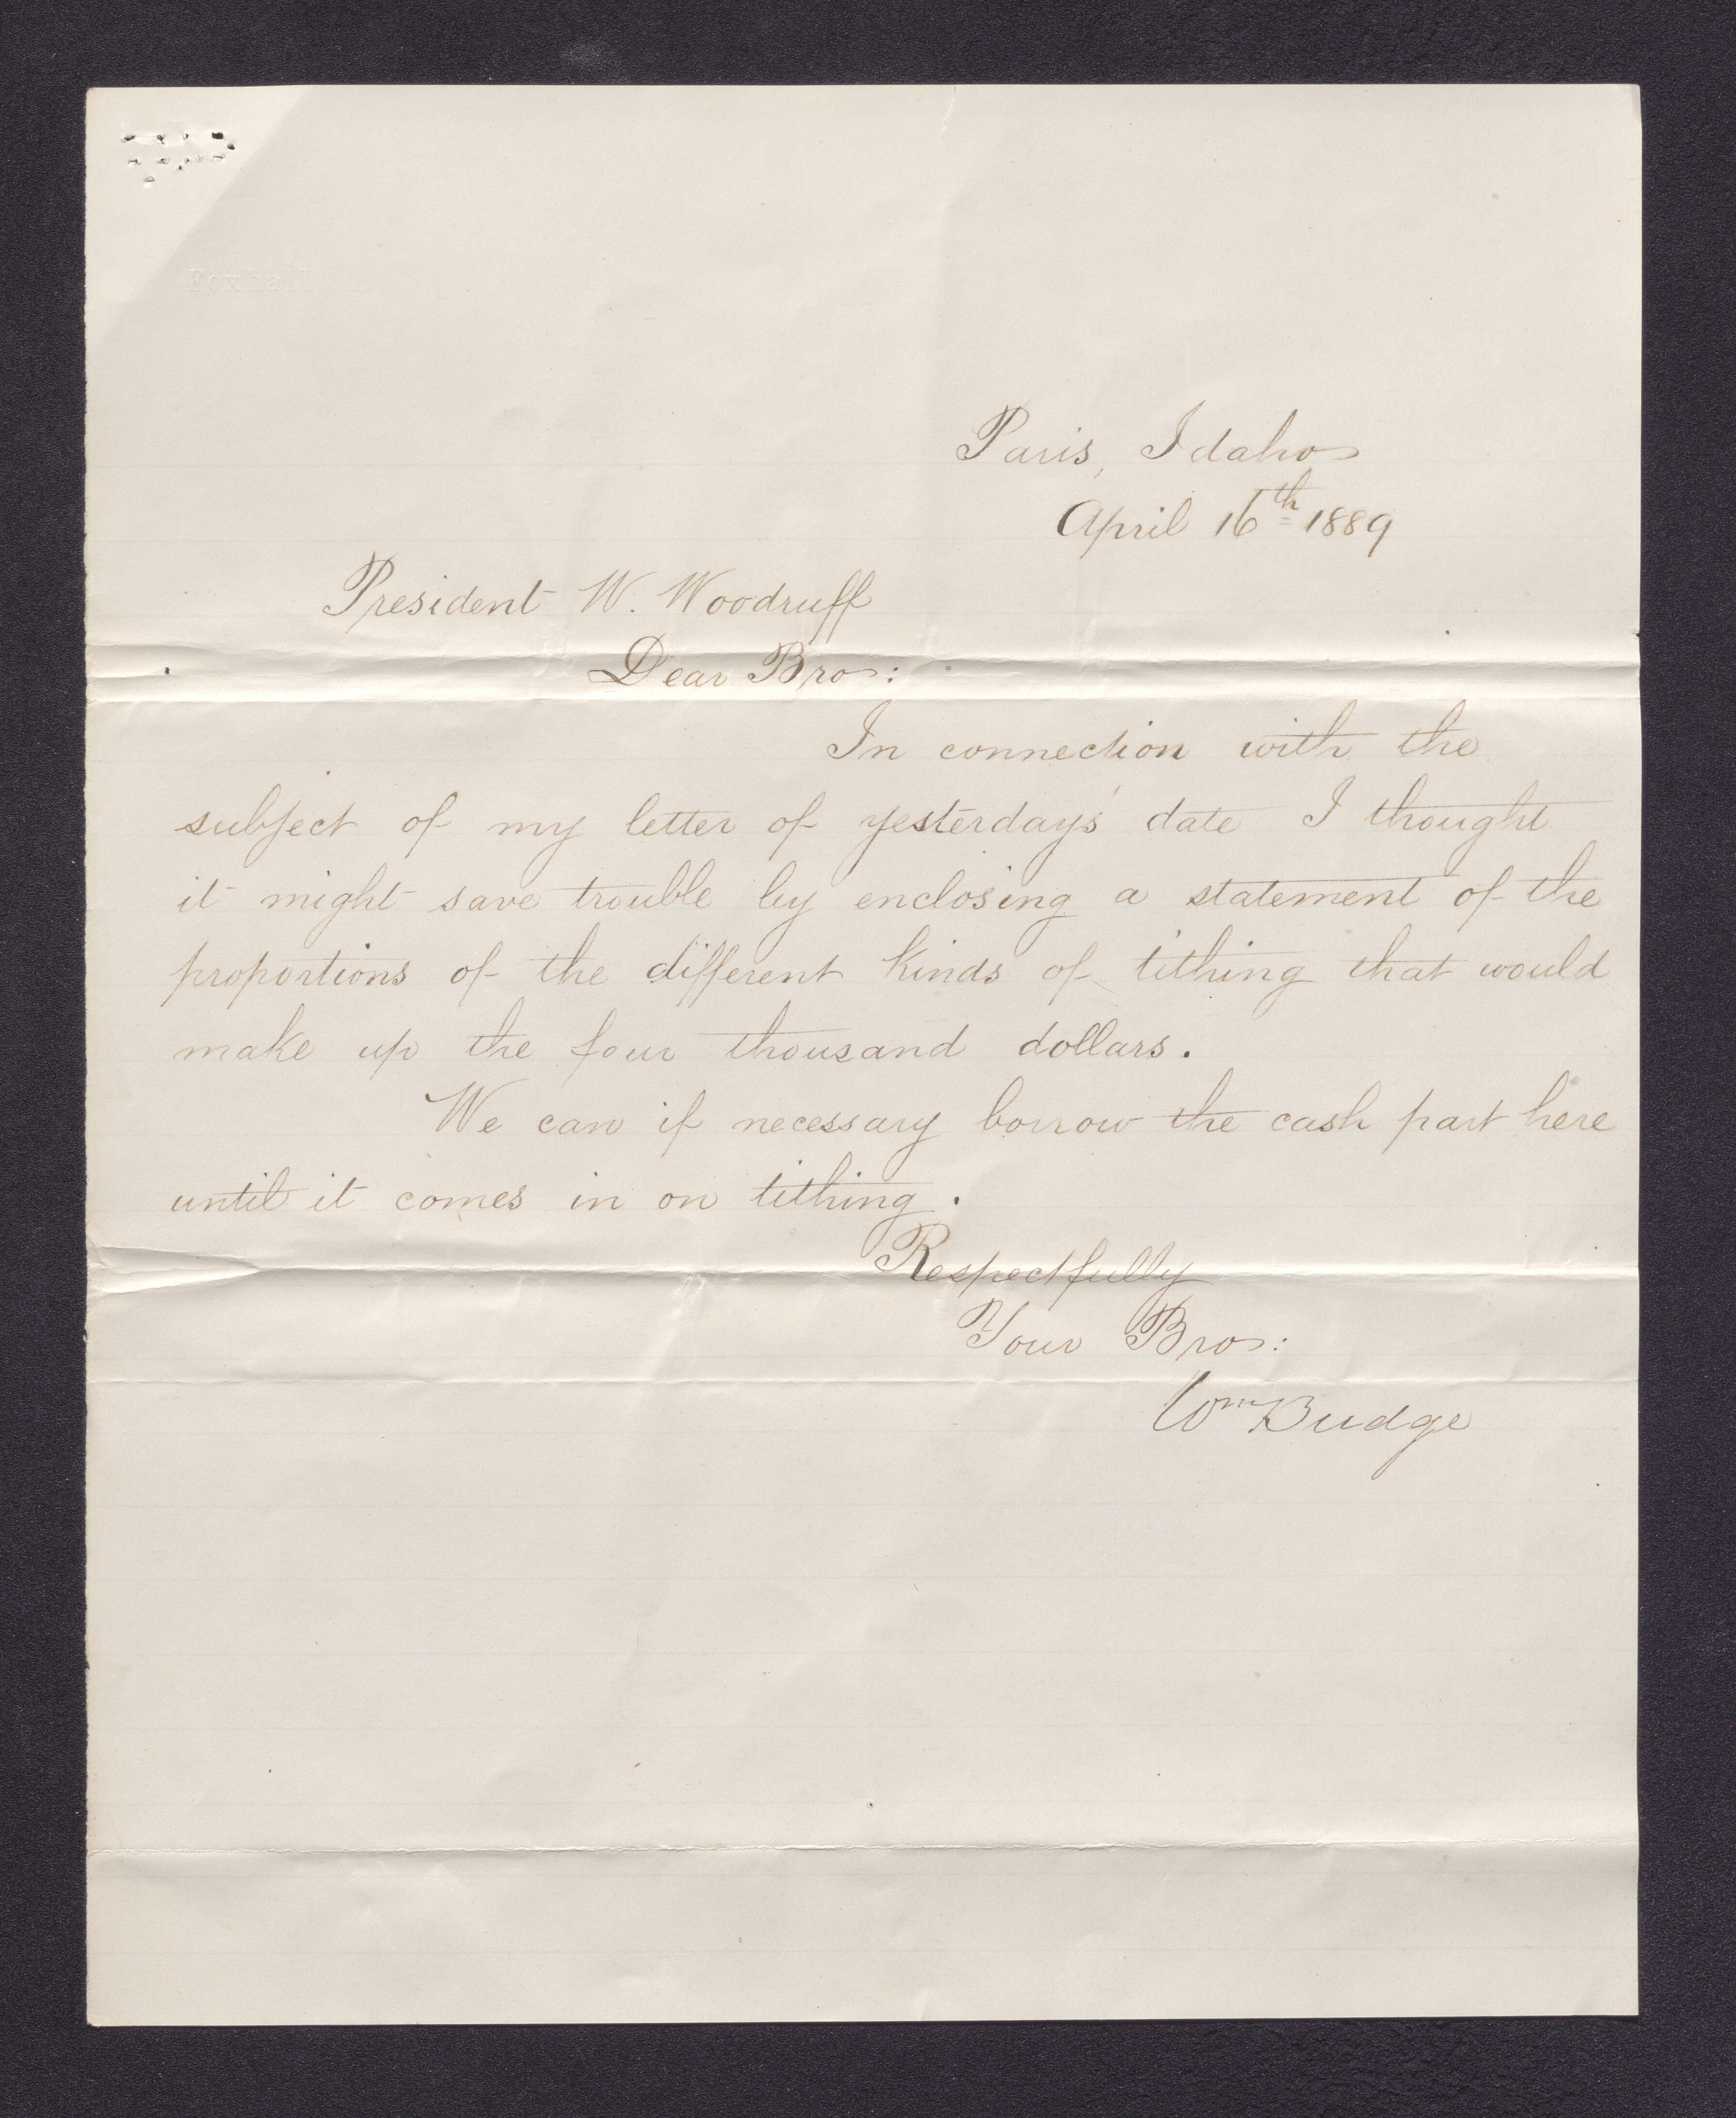 Foxhall
Paris, Idaho
April 16th 1889
President W. Woodruff
Dear Bro:
In connection with the
subject of my letter of yesterday's date I thought
it might save trouble by enclosing a statement of the
proportions of the different kinds of tithing that would
make up the four thousand dollars.
We can if necessary borrow the cash part here
until it comes in on tithing.
Respectfully
Your Bro:
Wm Budge